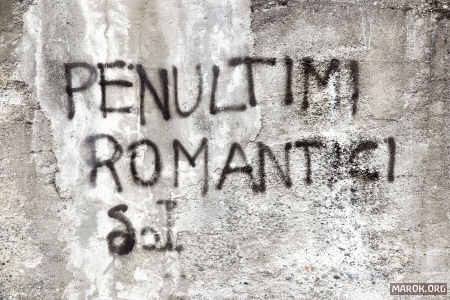 PENULTIMI
ROMANTICI
MAROK.ORG